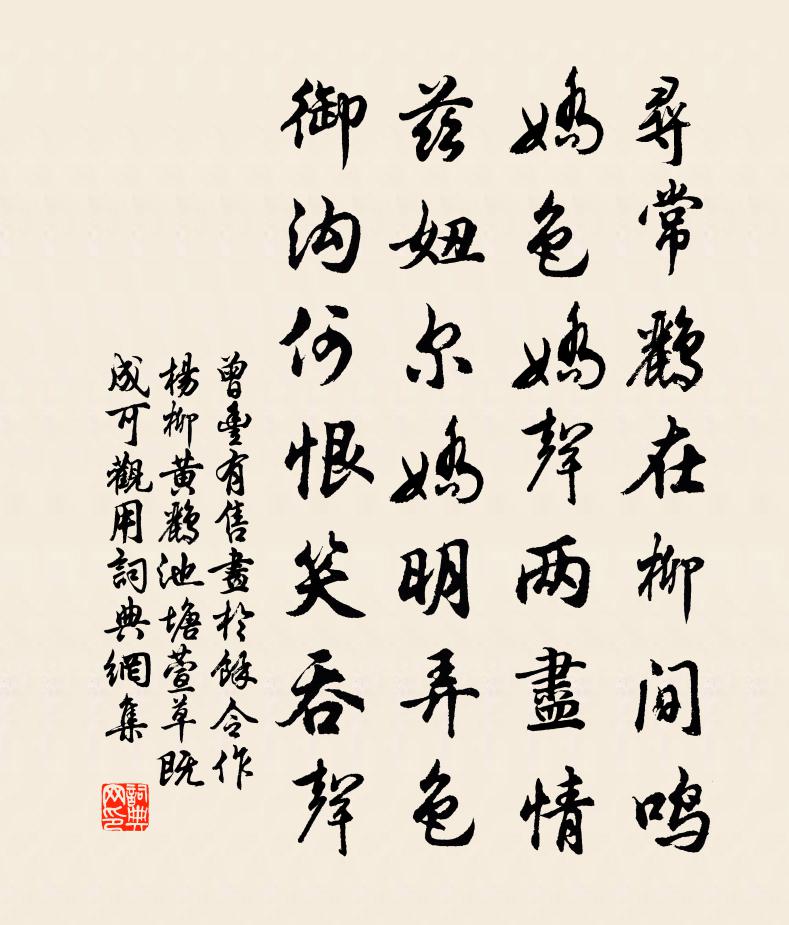 尋常鸝在柳間鳴
嬌色嬌聲两盡情
兹妞尔嬌明弄色
御沟何恨笑吞聲
曾豊有售畫於餘令作
楊柳黄鸝池塘萱草既
成可觀用詞典網集
詞典网印